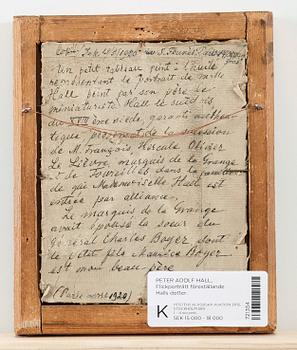 Un petit tableau peint à l'huile
représentant le portrait de Mlle
Hall peint par son père le
miniaturiste Hall le suédois
du XVIII ème siècle, garanti authen-
tique provenant de la succession
de M. François Hercule Ollivier
Le Lièvre, marquis de la Grange
et de Fourilles dans la famille
de qui Mademoiselle Hall est
entrée par alliance.
Le marquis de la Grange
avait épousé la soeur du
Général Charles Boyer dont
le petit fils Maurice Boyer
est mon beau père
Paris mars 1920
K
PETER ADOLF HALL,
Flickporträtt föreställande
Halls dotter.
SEK 15 000 - 18 000
721554